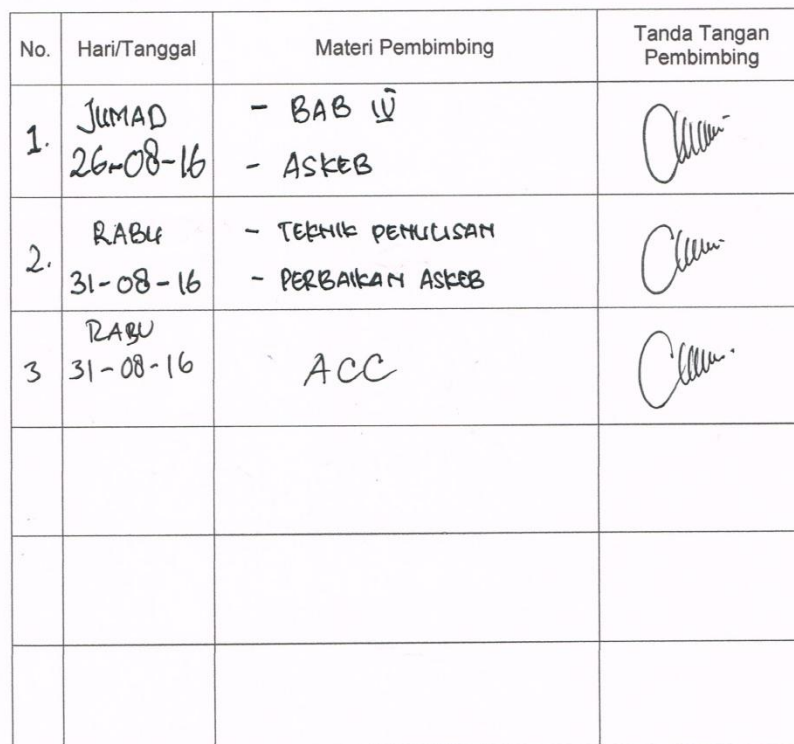 No. Hari/Tanggal Materi Pembimbing Tanda Tangan Pembimbing
1. JUMAD 26-08-16 - BAB IV - ASKEB
2. RABU 31-08-16 - TEKNIK PENULISAN - PERBAIKAN ASKEB
3 RABU 31-08-16 ACC